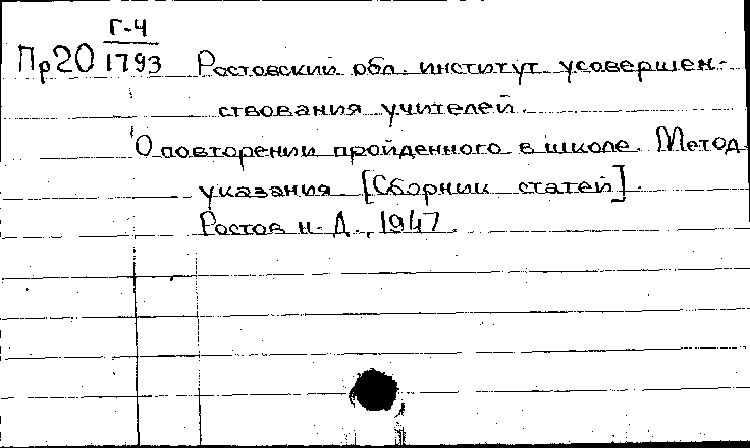 Г-4
Пр20 1793 Ростовский обл. институт усовершен-
ствования учителей.
О повторении пройденного в школе. Метод.
указания [Сборник статей].
Ростов н-Д., 1947.